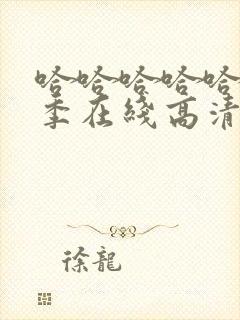 哈哈哈哈哈
季在綫高清
徐龍